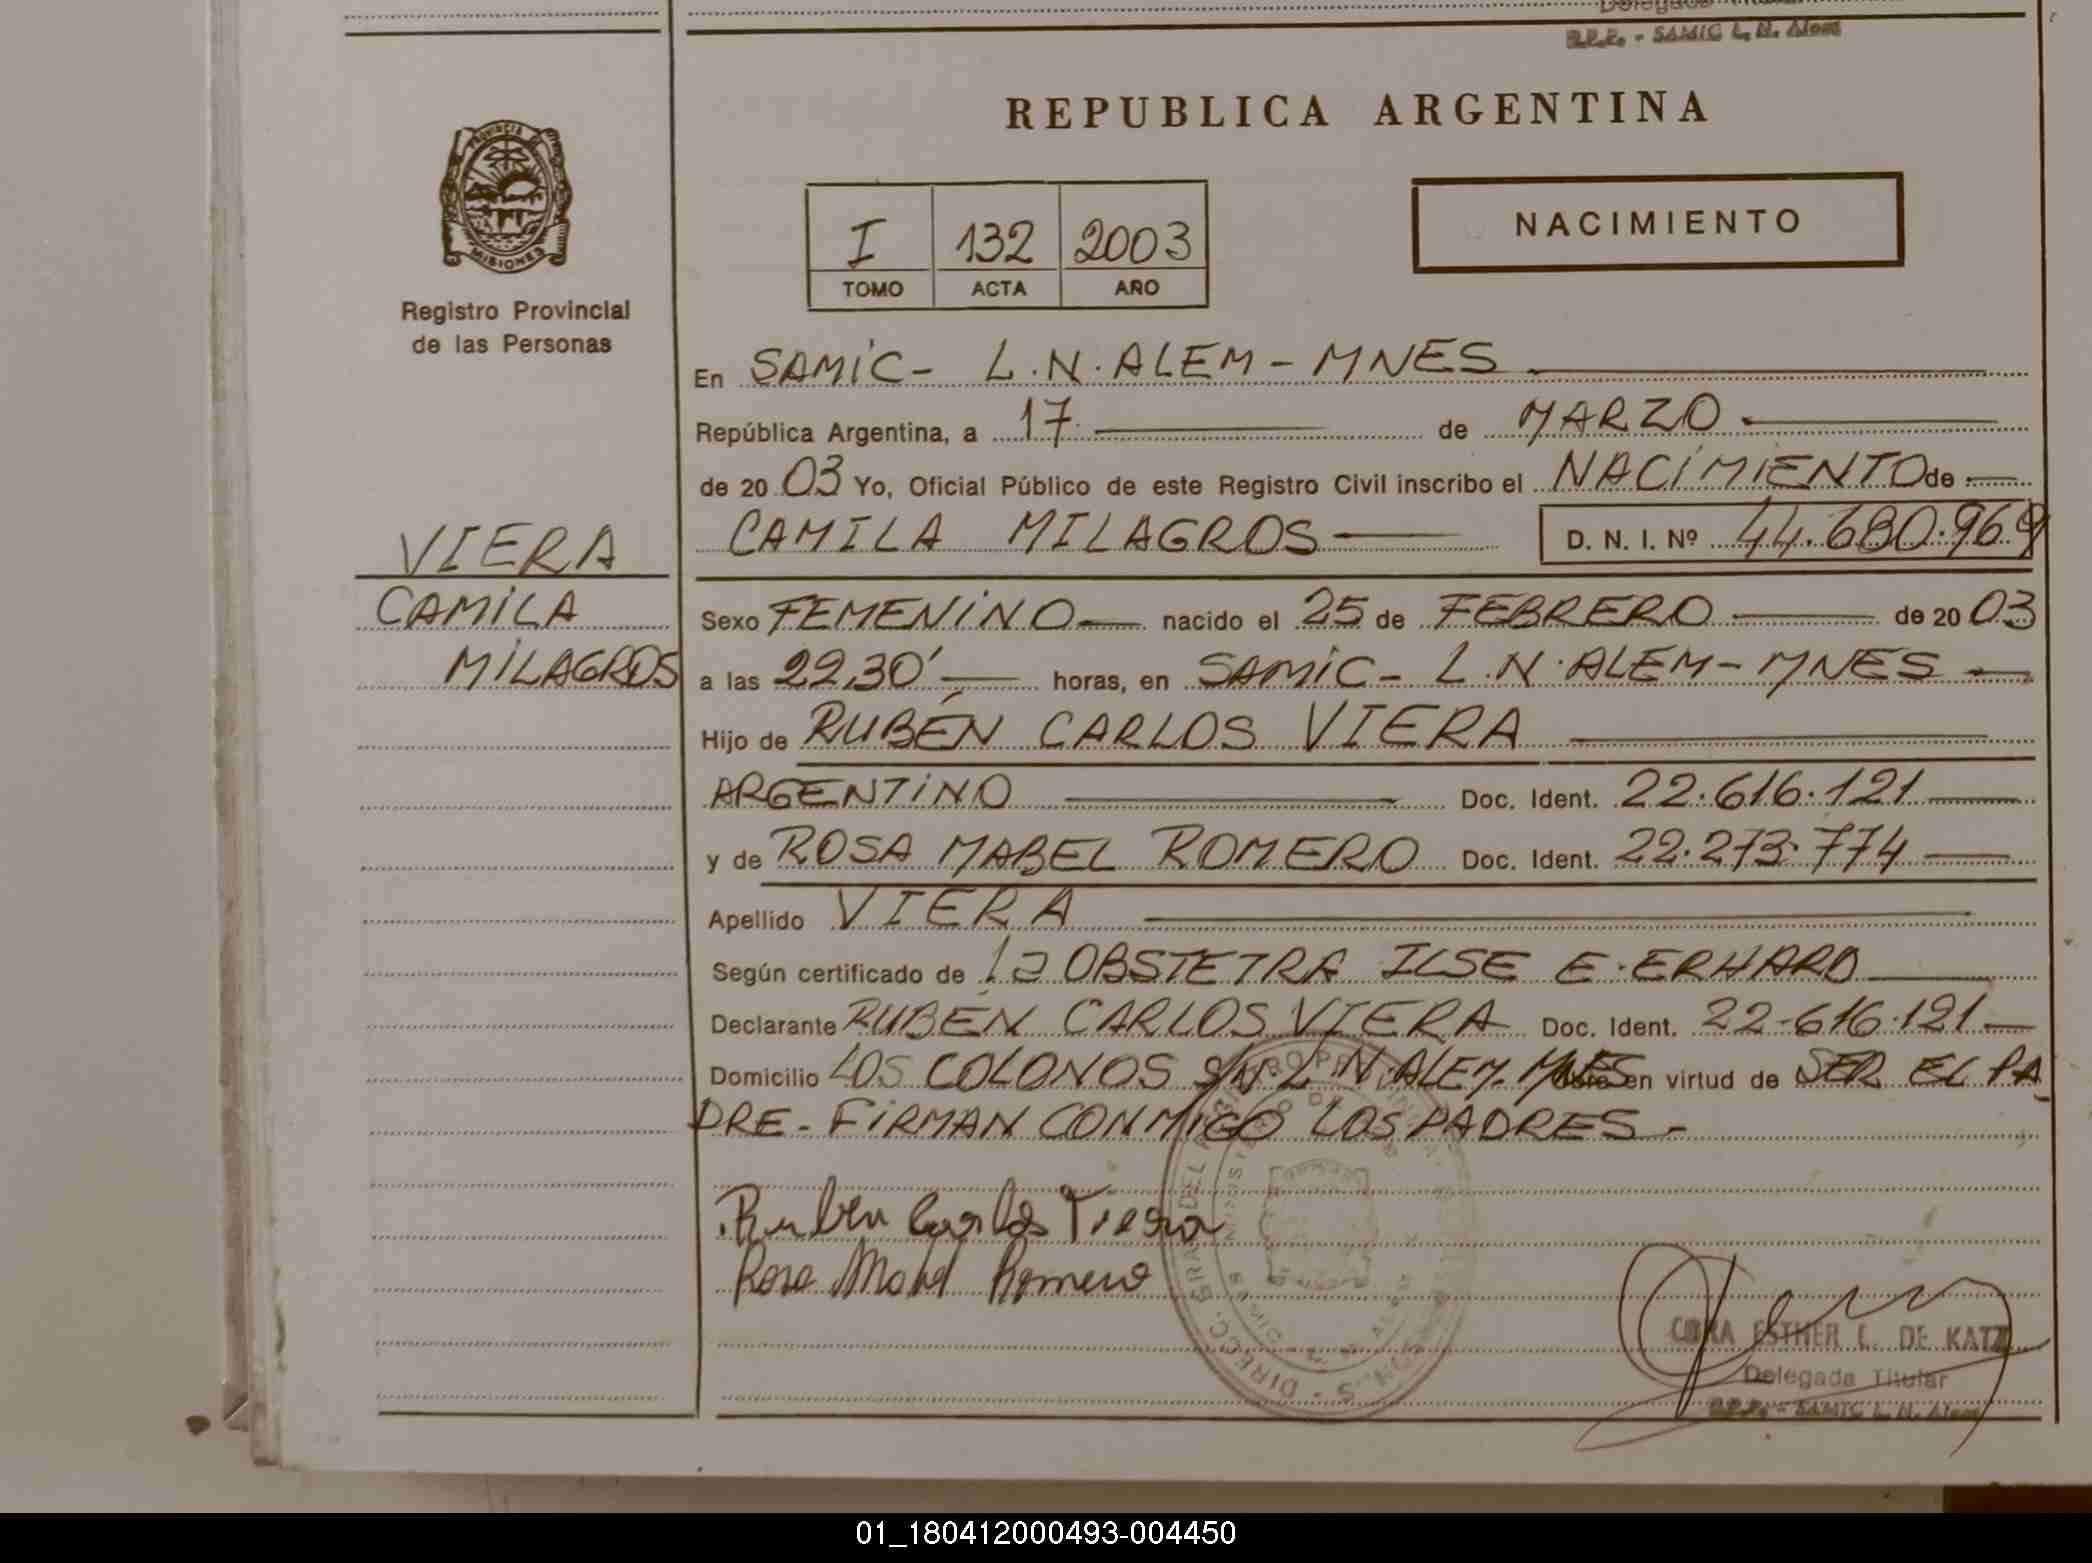 R.P.P. - SAMIC L. N. Alem
REPUBLICA ARGENTINA
PROVINCIA DE
MISIONES
Registro Provincial
de las Personas
I 132 2003
TOMO ACTA AÑO
NACIMIENTO
En SAMIC - L.N. ALEM - MNES
República Argentina, a 17 de MARZO
de 20 03 Yo, Oficial Público de este Registro Civil inscribo el NACIMIENTO de
CAMILA MILAGROS D. N. I. Nº 44.680.969
VIERA
CAMILA
MILAGROS
Sexo FEMENINO nacido el 25 de FEBRERO de 20 03
a las 22,30' horas, en SAMIC - L.N. ALEM - MNES
Hijo de RUBÉN CARLOS VIERA
ARGENTINO Doc. Ident. 22.616.121
y de ROSA MABEL ROMERO Doc. Ident. 22.273.774
Apellido VIERA
Según certificado de la OBSTETRA ILSE E. ERHARD
Declarante RUBÉN CARLOS VIERA Doc. Ident. 22.616.121
Domicilio LOS COLONOS S/N L.N. ALEM. MNES en virtud de SER EL PA
DRE - FIRMAN CONMIGO LOS PADRES -
Ruben Carlos Viera
Rosa Mabel Romero
ESTHER L. DE KATZ
Delegada Titular
R.P.P. - SAMIC L. N. Alem
01_180412000493-004450